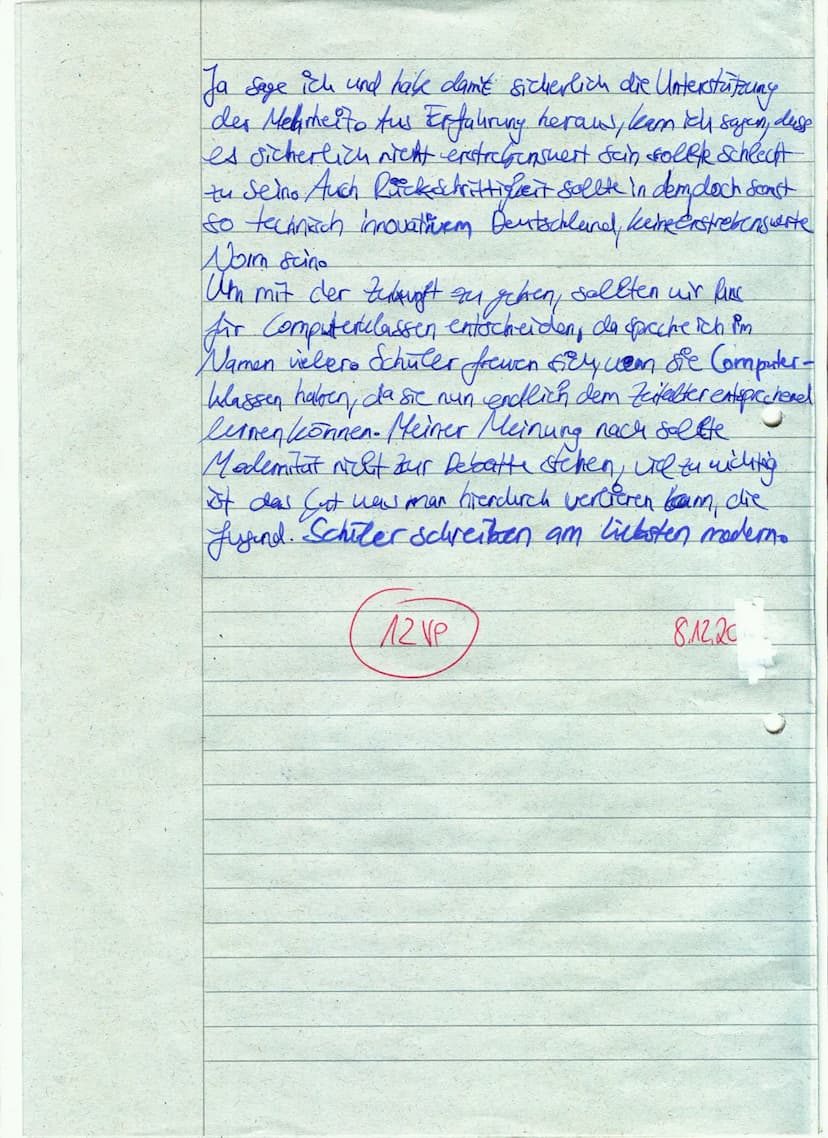 Ja sage ich und habe damit sicherlich die Unterstützung
der Mehrheit. Aus Erfahrung heraus, kann ich sagen, dass
es sicherlich nicht erstrebenswert sein sollte schlecht
zu sein. Auch Rückschrittigkeit sollte in dem doch sonst
so technisch innovativem Deutschland, keine erstrebenswerte
Norm sein.
Um mit der Zukunft zu gehen, sollten wir uns
für Computerklassen entscheiden, da spreche ich im
Namen vieler. Schüler freuen sich, wenn sie Computer-
klassen haben, da sie nun endlich dem Zeitalter entsprechend
lernen können. Meiner Meinung nach sollte
Modernität nicht zur Debatte stehen, viel zu wichtig
ist das Gut was man hierdurch verlieren kann, die
Jugend. Schüler schreiben am liebsten modern.
12 VP
8.12.20